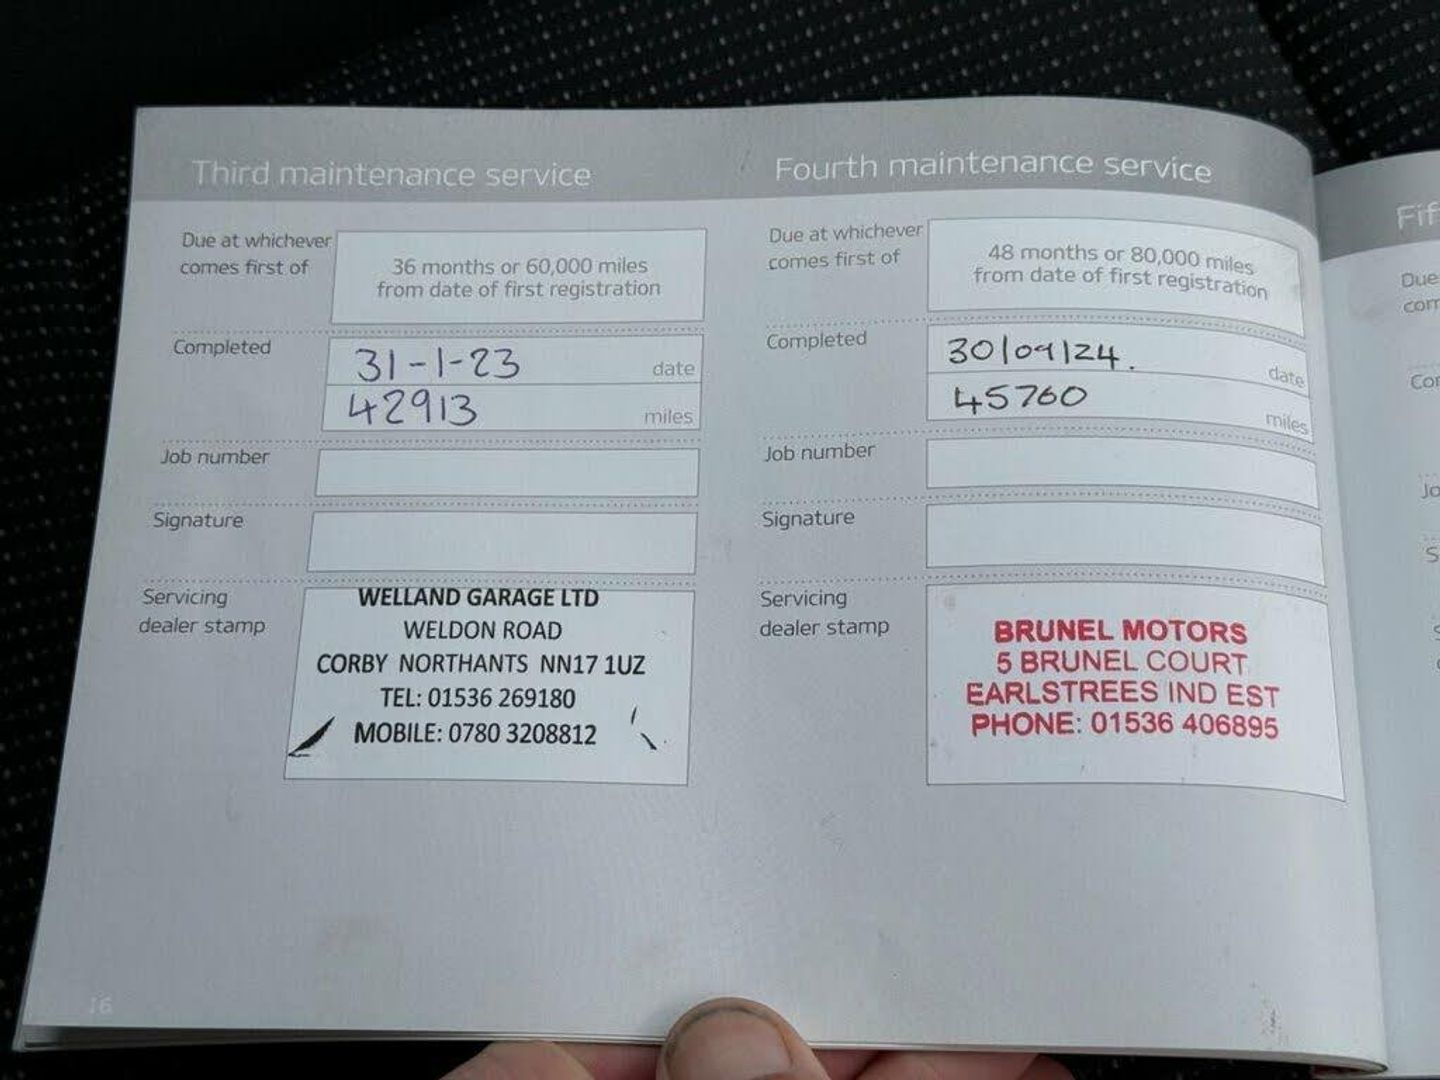 Third maintenance service
Due at whichever
comes first of
36 months or 60,000 miles
from date of first registration
Completed
31-1-23
date
42913
miles
Job number
Signature
Servicing
dealer stamp
WELLAND GARAGE LTD
WELDON ROAD
CORBY NORTHANTS NN17 1UZ
TEL: 01536 269180
MOBILE: 0780 3208812
16
Fourth maintenance service
Due at whichever
comes first of
48 months or 80,000 miles
from date of first registration
Completed
30/09/24.
date
45760
miles
Job number
Signature
Servicing
dealer stamp
BRUNEL MOTORS
5 BRUNEL COURT
EARLSTREES IND EST
PHONE: 01536 406895
Fif
Due
com
Co
Jo
S